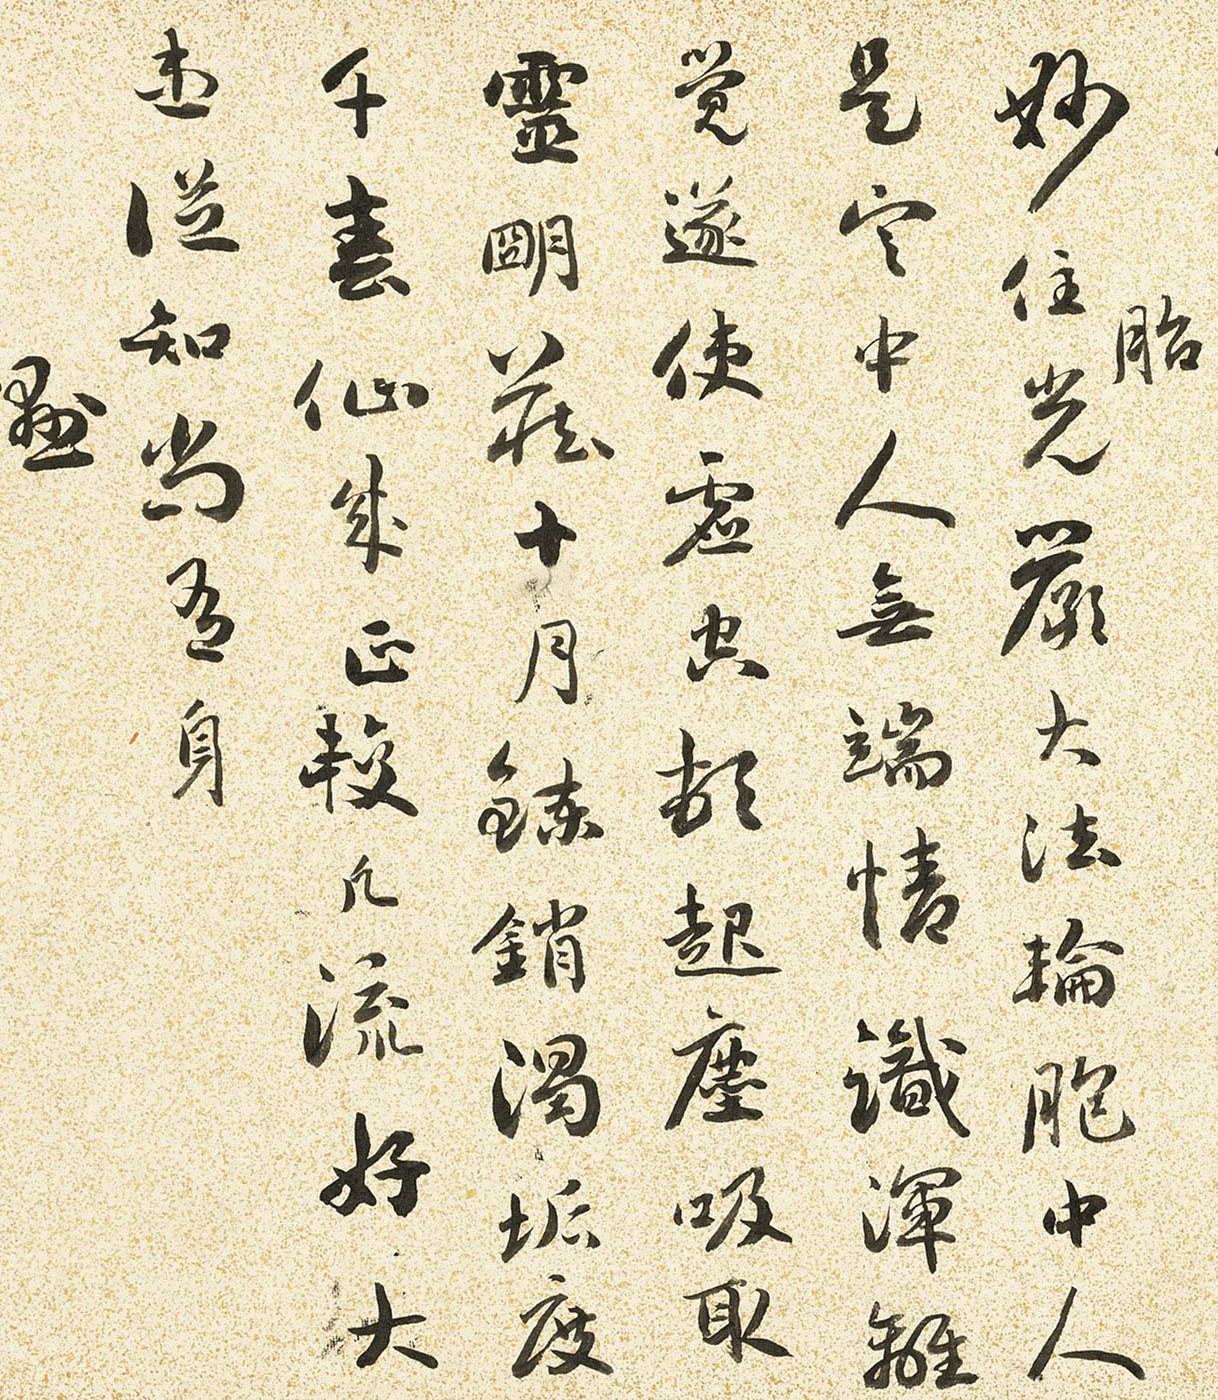 胎
妙住光嚴大法輪胞中人
是定中人無端情識渾離
覺遂使虛空頓起塵吸取
靈明藏十月鍊銷濁垢度
千春仙成正較凡流好大
患從知尚有身